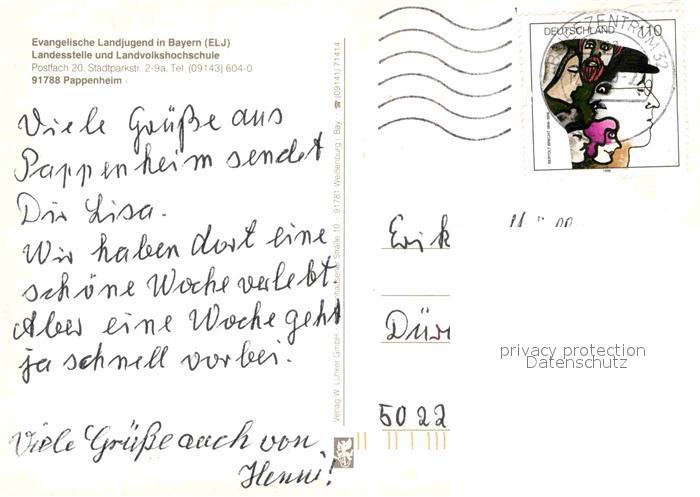 Evangelische Landjugend in Bayern (ELJ)
Landesstelle und Landvolkshochschule
Postfach 20, Stadtparkstr. 2-9a, Tel. (09143) 604-0
91788 Pappenheim
Viele Grüße aus
Pappenheim sendet
Dir Lisa.
Wir haben dort eine
schöne Woche verlebt.
Aber eine Woche geht
ja schnell vorbei.
Viele Grüße auch von
Henni!
Verlag W. Lühker GmbH
10 · 91781 Weißenburg i. Bay. ☎ (09141) 71414
DEUTSCHLAND 110
BERTOLT BRECHT 1898-1956
1998
ZENTRUM 32
Erik
Dür
5022
privacy protection
Datenschutz